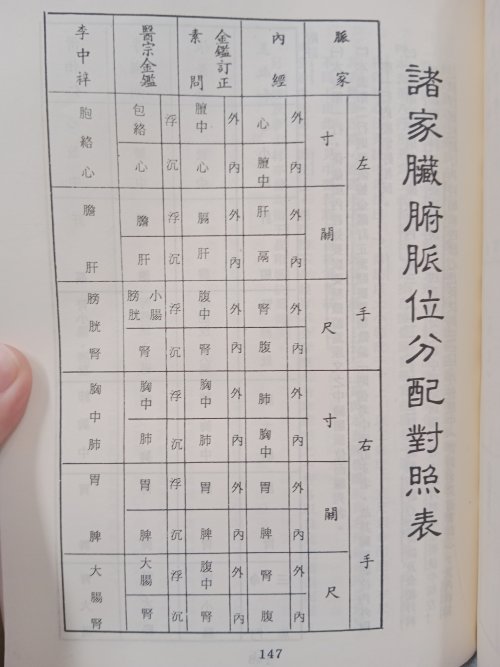 諸家臟腑脈位分配對照表
脈家
左手
右手
寸
關
尺
寸
關
尺
內經
外 心
內 膻中
外 肝
內 鬲
外 腎
內 腹
外 肺
內 胸中
外 胃
內 脾
外 腎
內 腹
金鑑訂正
素問
外 膻中
內 心
外 膈
內 肝
外 腹中
內 腎
外 胸中
內 肺
外 胃
內 脾
外 腹中
內 腎
醫宗金鑑
浮 包絡
沉 心
浮 膽
沉 肝
浮 小腸 膀胱
沉 腎
浮 胸中
沉 肺
浮 胃
沉 脾
浮 大腸
沉 腎
李中梓
胞絡 心
膽 肝
膀胱 腎
胸中 肺
胃 脾
大腸 腎
147